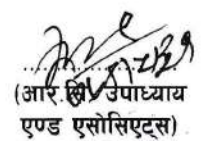 (आर. सि. उपाध्याय
एण्ड एसोसिएट्स)